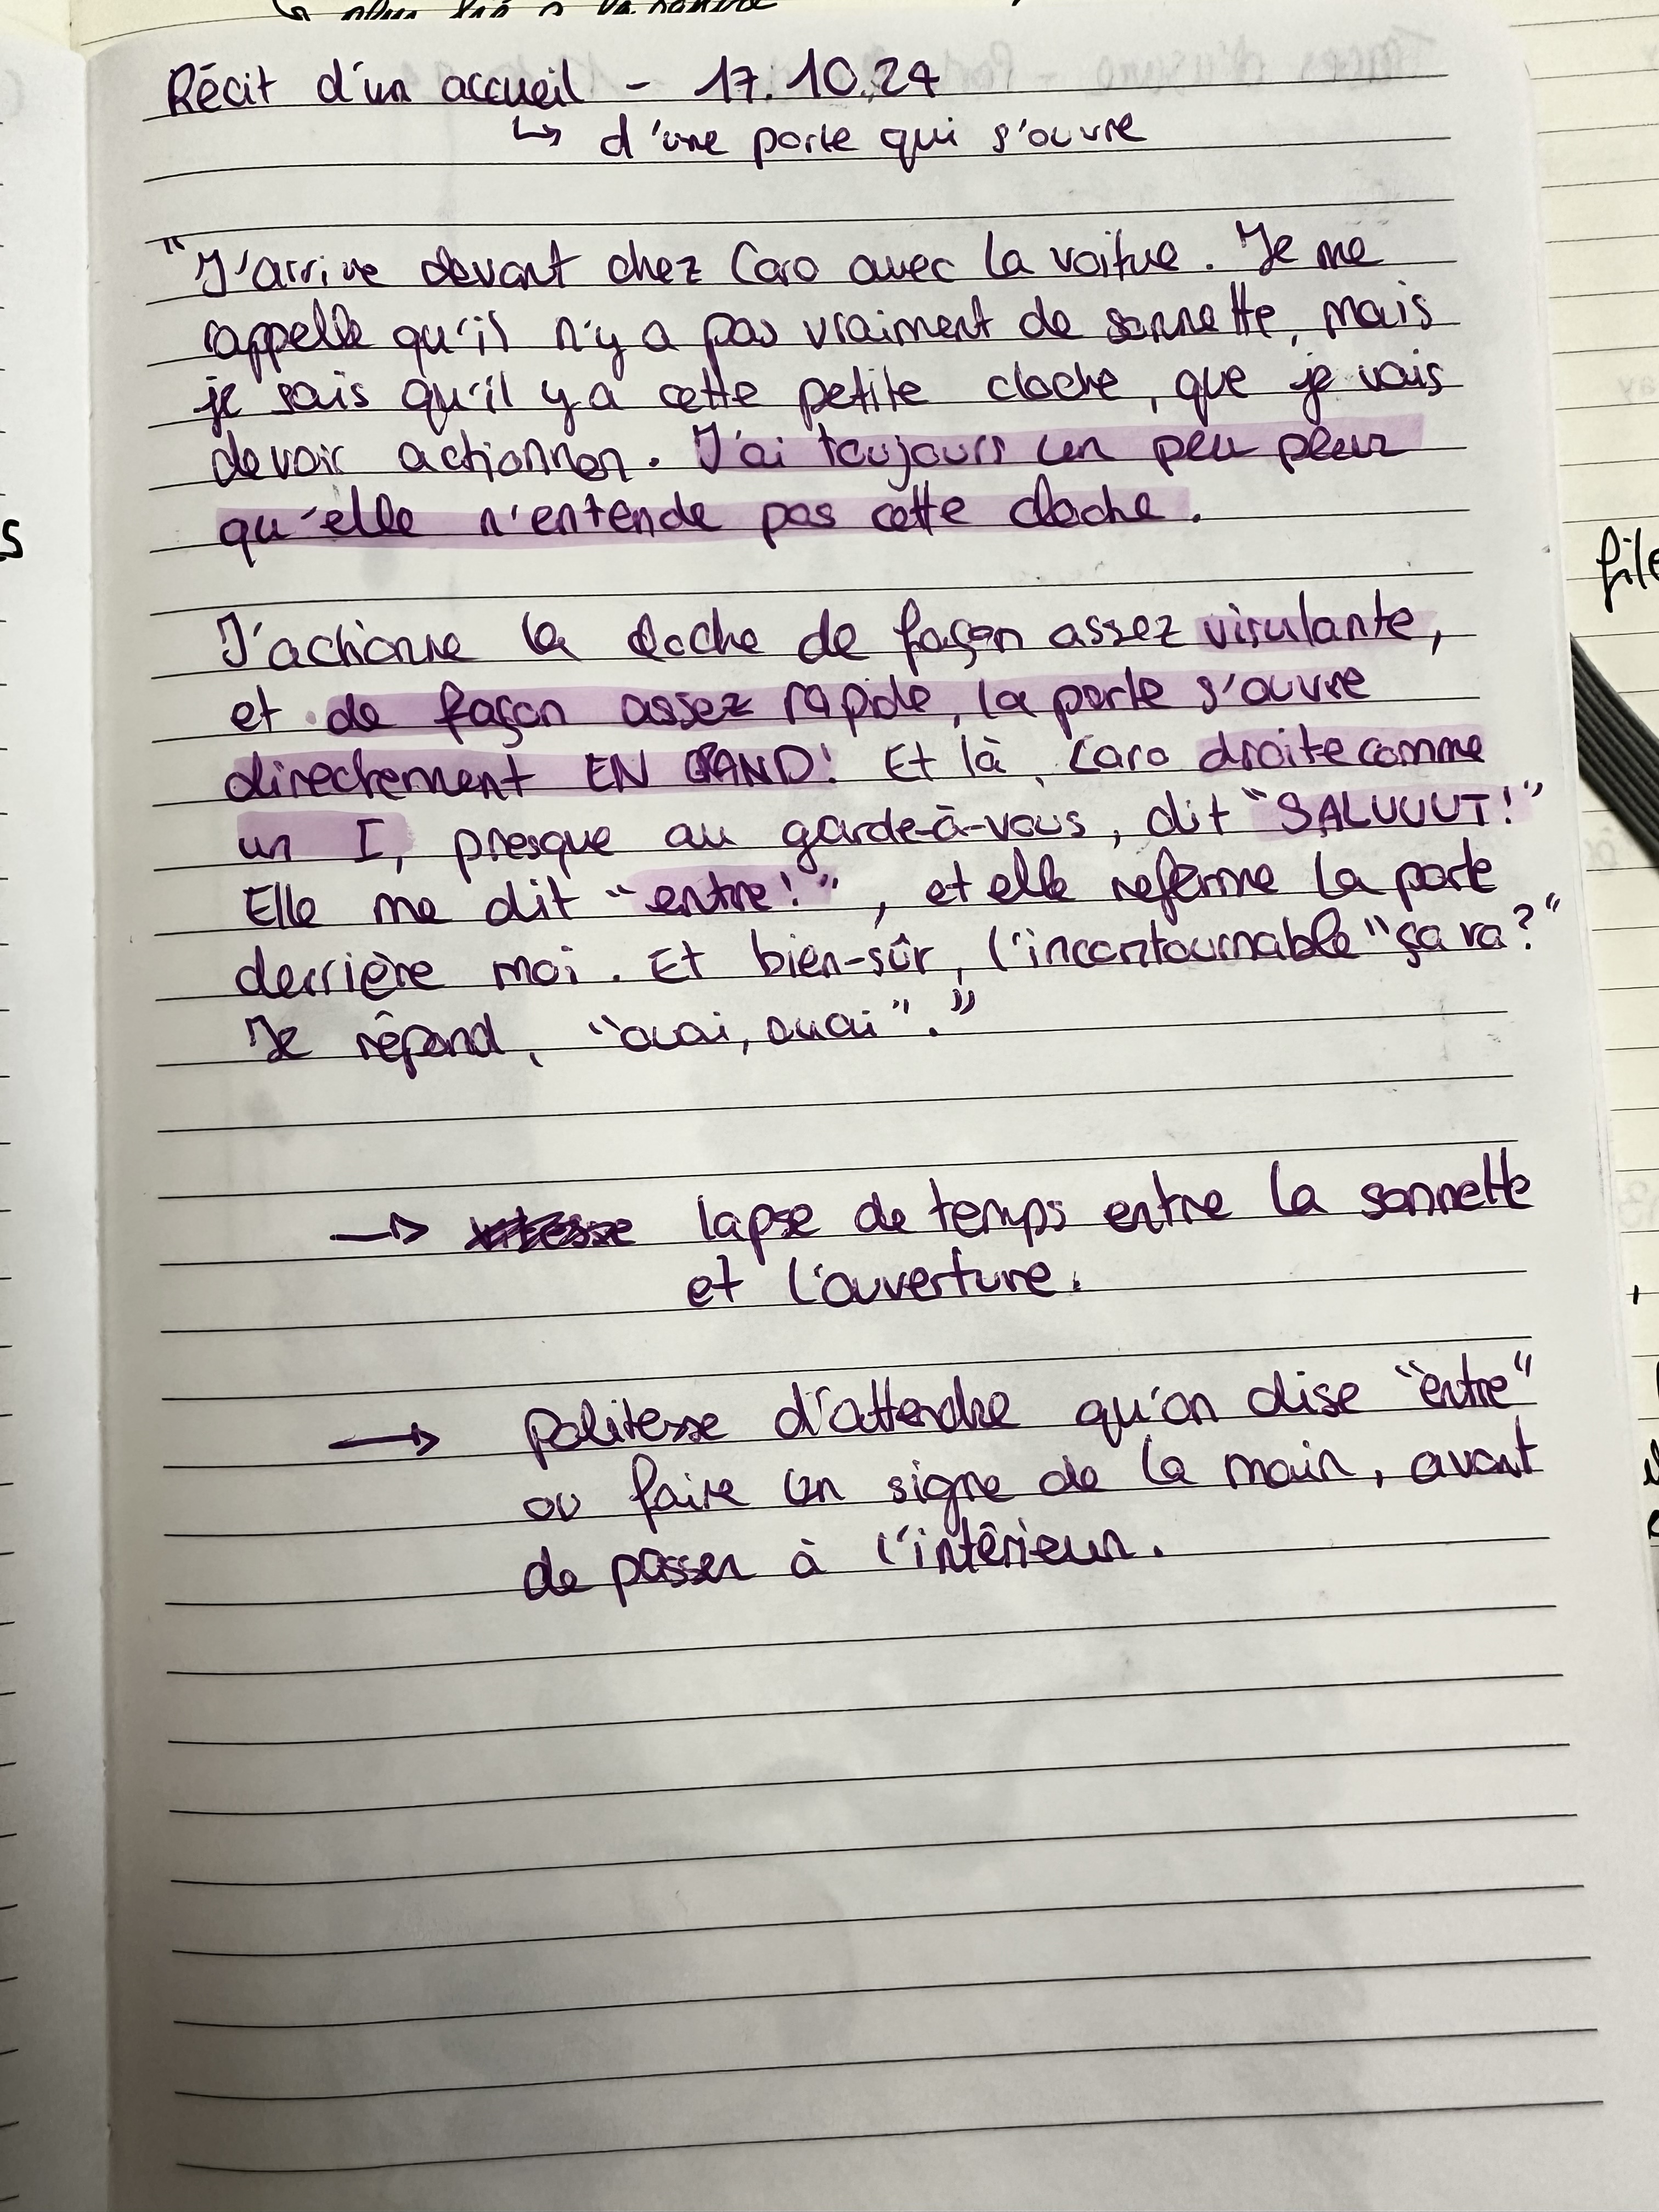 Récit d'un accueil - 17.10.24
↳ d'une porte qui s'ouvre
"J'arrive devant chez Caro avec la voitue. Je me
rappelle qu'il n'y a pas vraiment de sonnette, mais
je sais qu'il y a cette petite cloche, que je vais
devoir actionner. J'ai toujours un peu peur
qu'elle n'entende pas cette cloche.
J'actionne la cloche de façon assez virulante,
et de façon assez rapide, la porte s'ouvre
directement EN GRAND! Et là, Caro droite comme
un I, presque au garde-à-vous, dit "SALUUUT!"
Elle me dit "entre!", et elle referme la porte
derrière moi. Et bien-sûr, l'incontournable "ça va?"
Je répond, "ouai, ouai"."
→ lapse de temps entre la sonnette
et l'ouverture.
→ politesse d'attendre qu'on dise "entre"
ou faire un signe de la main, avant
de passer à l'intérieur.